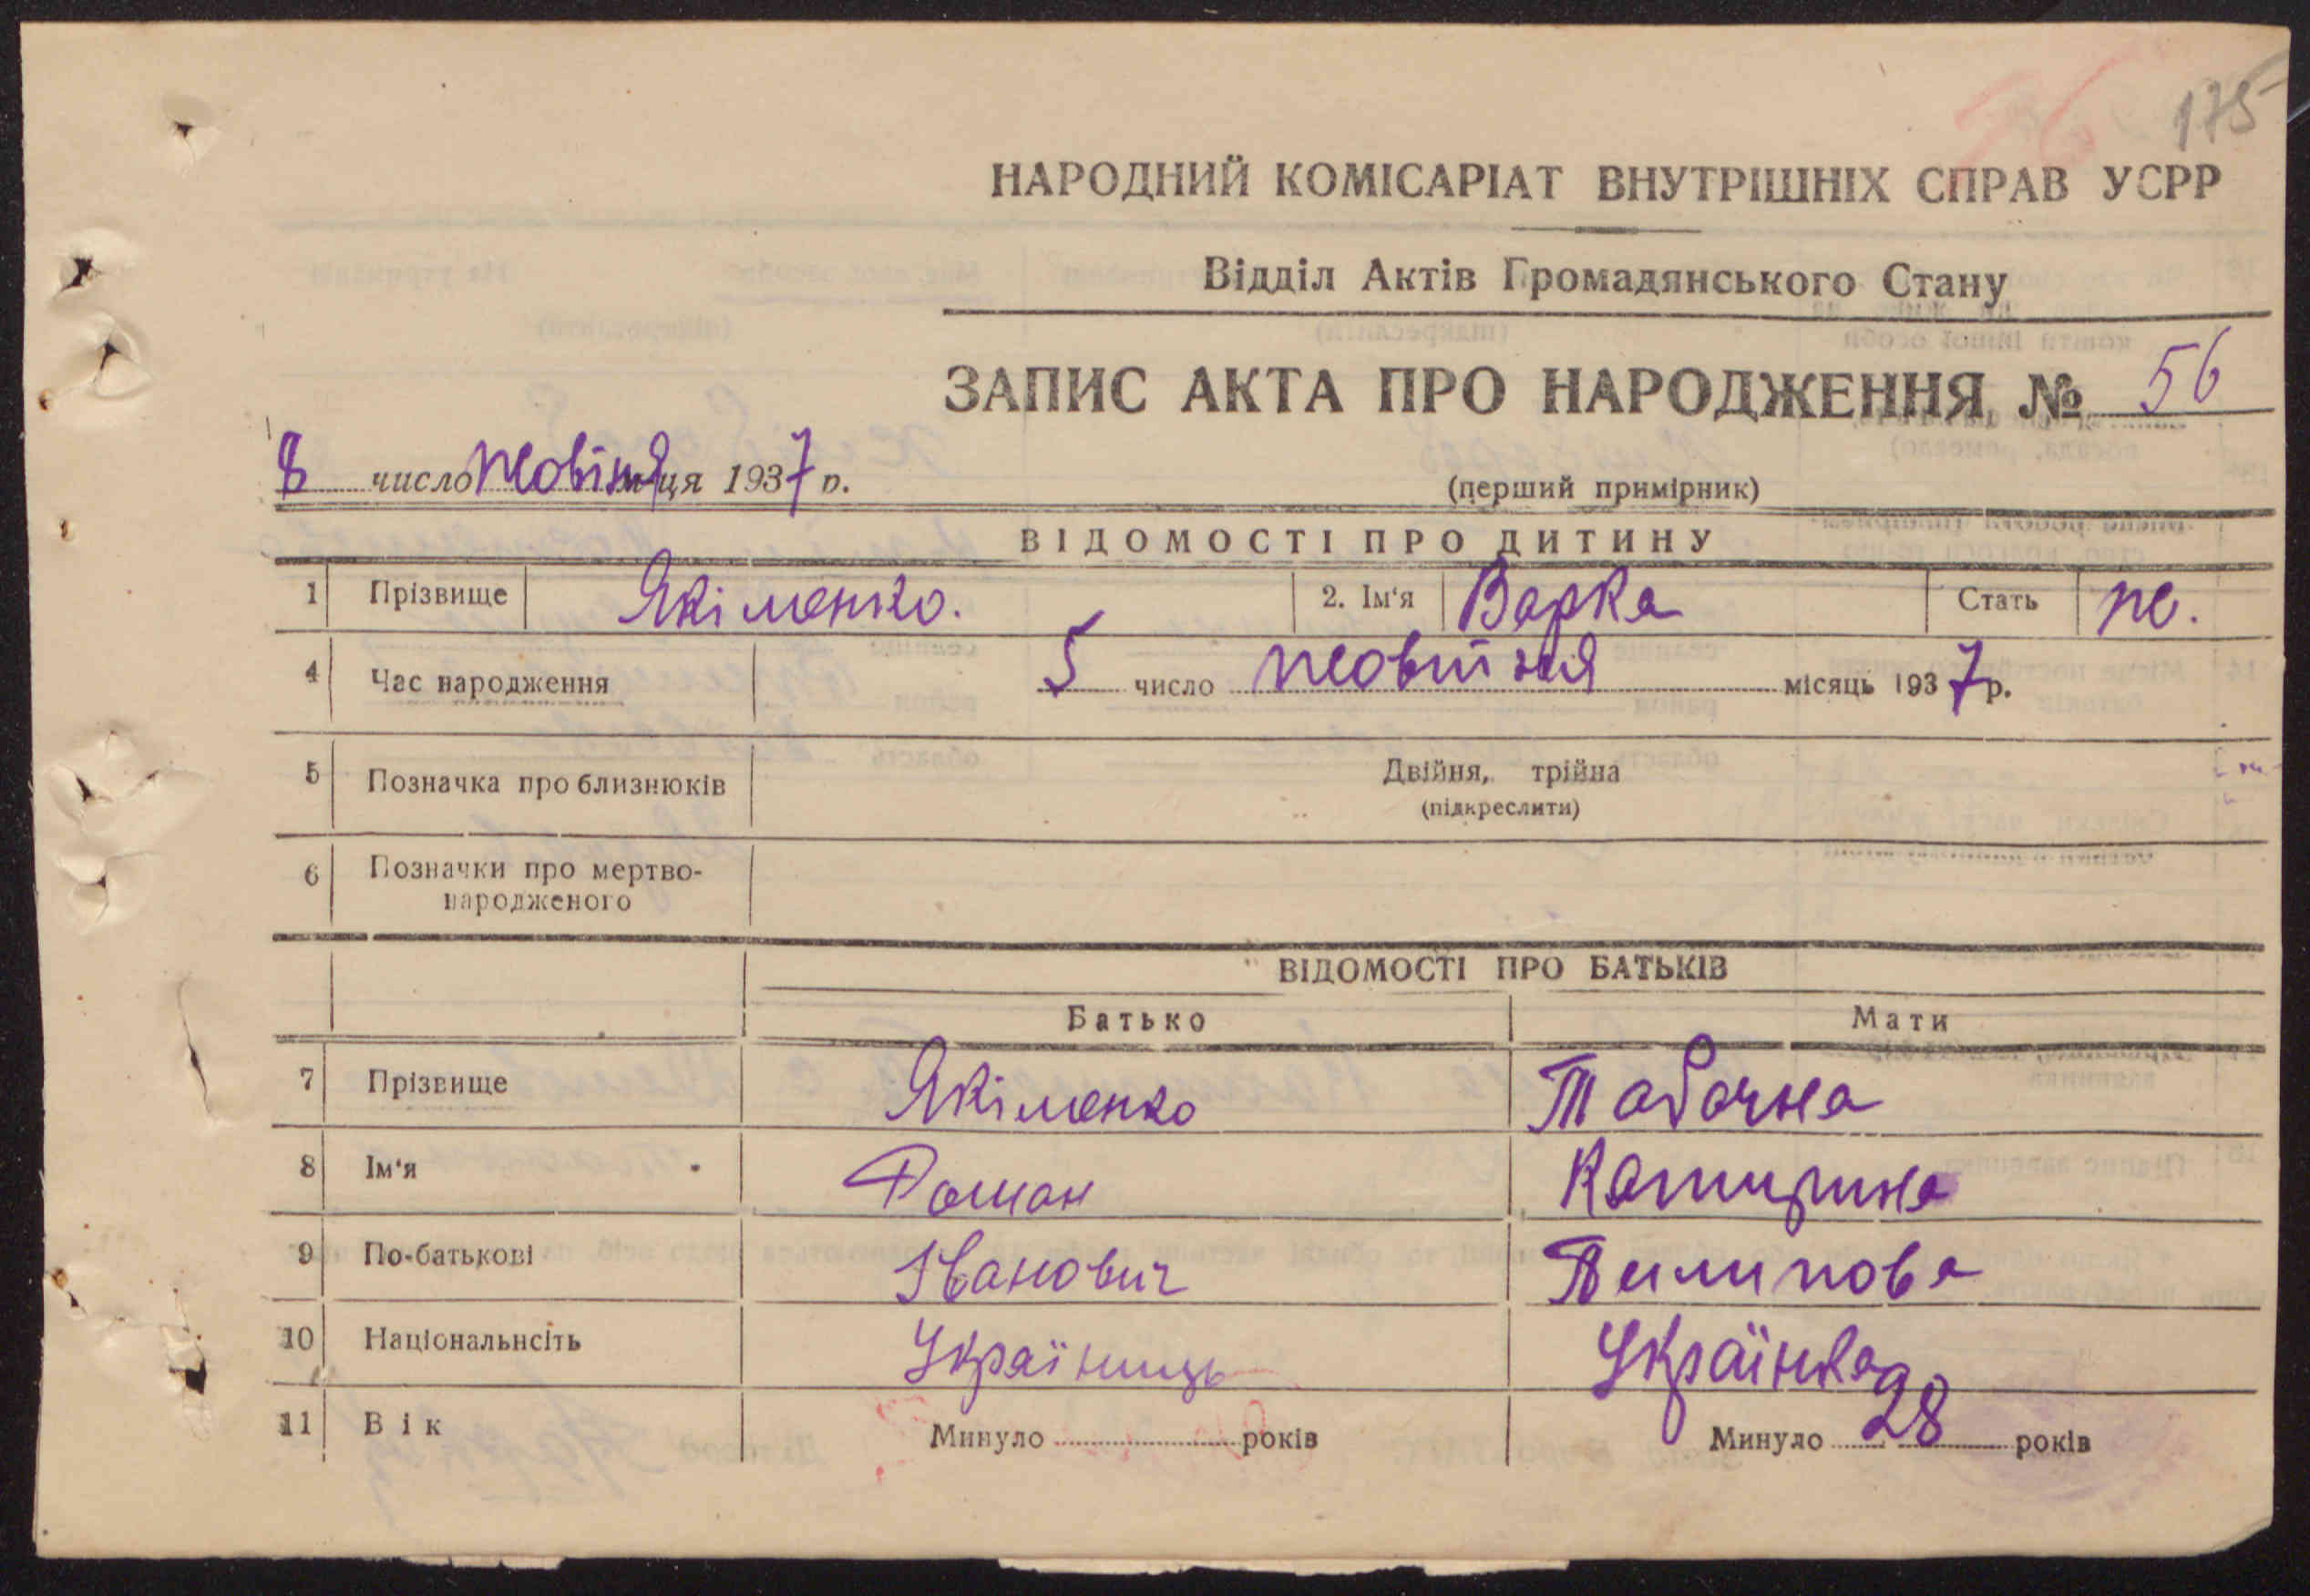 175
НАРОДНИЙ КОМІСАРІАТ ВНУТРІШНІХ СПРАВ УСРР
Відділ Актів Громадянського Стану
ЗАПИС АКТА ПРО НАРОДЖЕННЯ № 56
8 число жовтня місяця 1937 р.
(перший примірник)
ВІДОМОСТІ ПРО ДИТИНУ
1 Прізвище Якіменко. 2. Ім'я Варка Стать ж.
4 Час народження 5 число жовтня місяць 1937 р.
5 Позначка про близнюків Двійня, трійна
(підкреслити)
6 Позначки про мертво-
народженого
ВІДОМОСТІ ПРО БАТЬКІВ
Батько Мати
7 Прізвище Якіменко Табачна
8 Ім'я Роман Катирина
9 По-батькові Іванович Пилипова
10 Національнсіть Українець Українка
11 Вік Минуло років Минуло 28 років